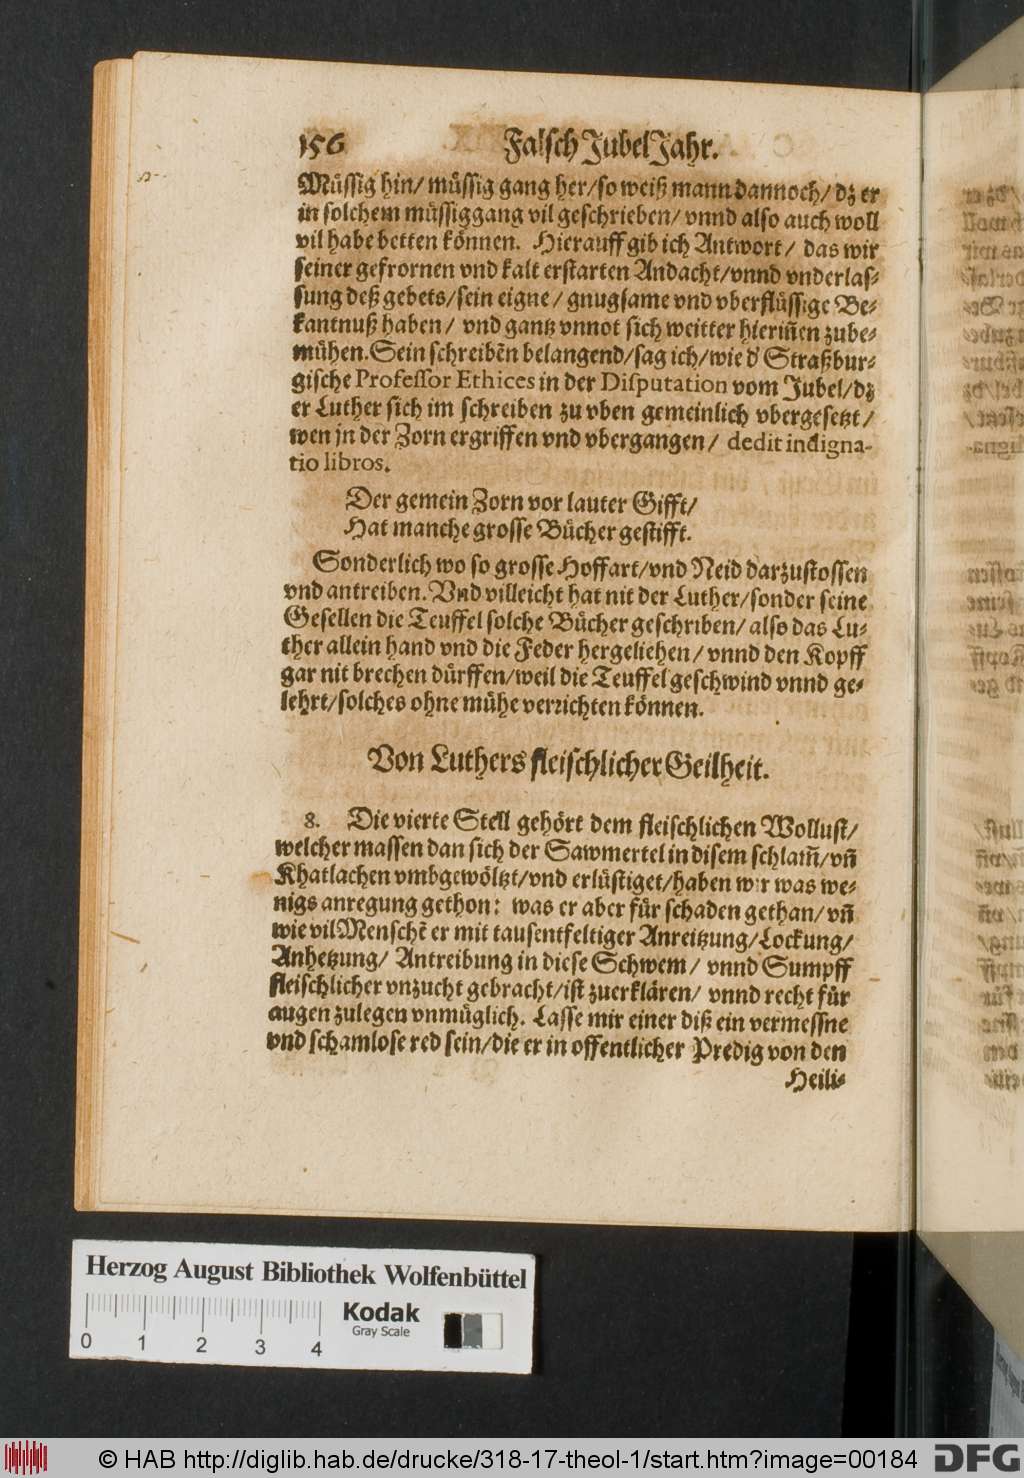 156 Falsch JubelJahr.
Müssig hin/ müssig gang her/so weiß mann dannoch/ dz er
in solchem müssiggang vil geschrieben/ vnnd also auch woll
vil habe betten können. Hierauff gib ich Antwort/ das wir
seiner gefrornen vnd kalt erstarten Andacht/vnnd vnderlas-
sung deß gebets/sein eigne/ gnugsame vnd vberflüssige Be-
kantnuß haben/ vnd gantz vnnot sich weitter hieriñen zube-
mühen. Sein schreibẽn belangend/sag ich/wie d' Straßbur-
gische Professor Ethices in der Disputation vom Jubel/dz
er Luther sich im schreiben zu vben gemeinlich vbergesetzt/
wen jn der Zorn ergriffen vnd vbergangen/ dedit indigna-
tio libros.
Der gemein Zorn vor lauter Gifft/
Hat manche grosse Bücher gestifft.
Sonderlich wo so grosse Hoffart/vnd Neid darzustossen
vnd antreiben. Vnd villeicht hat nit der Luther/sonder seine
Gesellen die Teuffel solche Bücher geschriben/ also das Lu-
ther allein hand vnd die Feder hergeliehen/ vnnd den Kopff
gar nit brechen dürffen/weil die Teuffel geschwind vnnd ge-
lehrt/solches ohne mühe verrichten können.
Von Luthers fleischlicher Geilheit.
8. Die vierte Stell gehört dem fleischlichen Wollust/
welcher massen dan sich der Sawmertel in disem schlam̃/vñ
Khatlachen vmbgewöltzt/vnd erlüstiget/haben wir was we-
nigs anregung gethon: was er aber für schaden gethan/ vñ
wie vil Menschẽ er mit tausentfeltiger Anreitzung/Lockung/
Anhetzung/ Antreibung in diese Schwem/ vnnd Sumpff
fleischlicher vnzucht gebracht/ist zuerklären/ vnnd recht für
augen zulegen vnmüglich. Lasse mir einer diß ein vermessne
vnd schamlose red sein/die er in offentlicher Predig von den
Heili-
Herzog August Bibliothek Wolfenbüttel
0 1 2 3 4
Kodak
Gray Scale
© HAB http://diglib.hab.de/drucke/318-17-theol-1/start.htm?image=00184
DFG